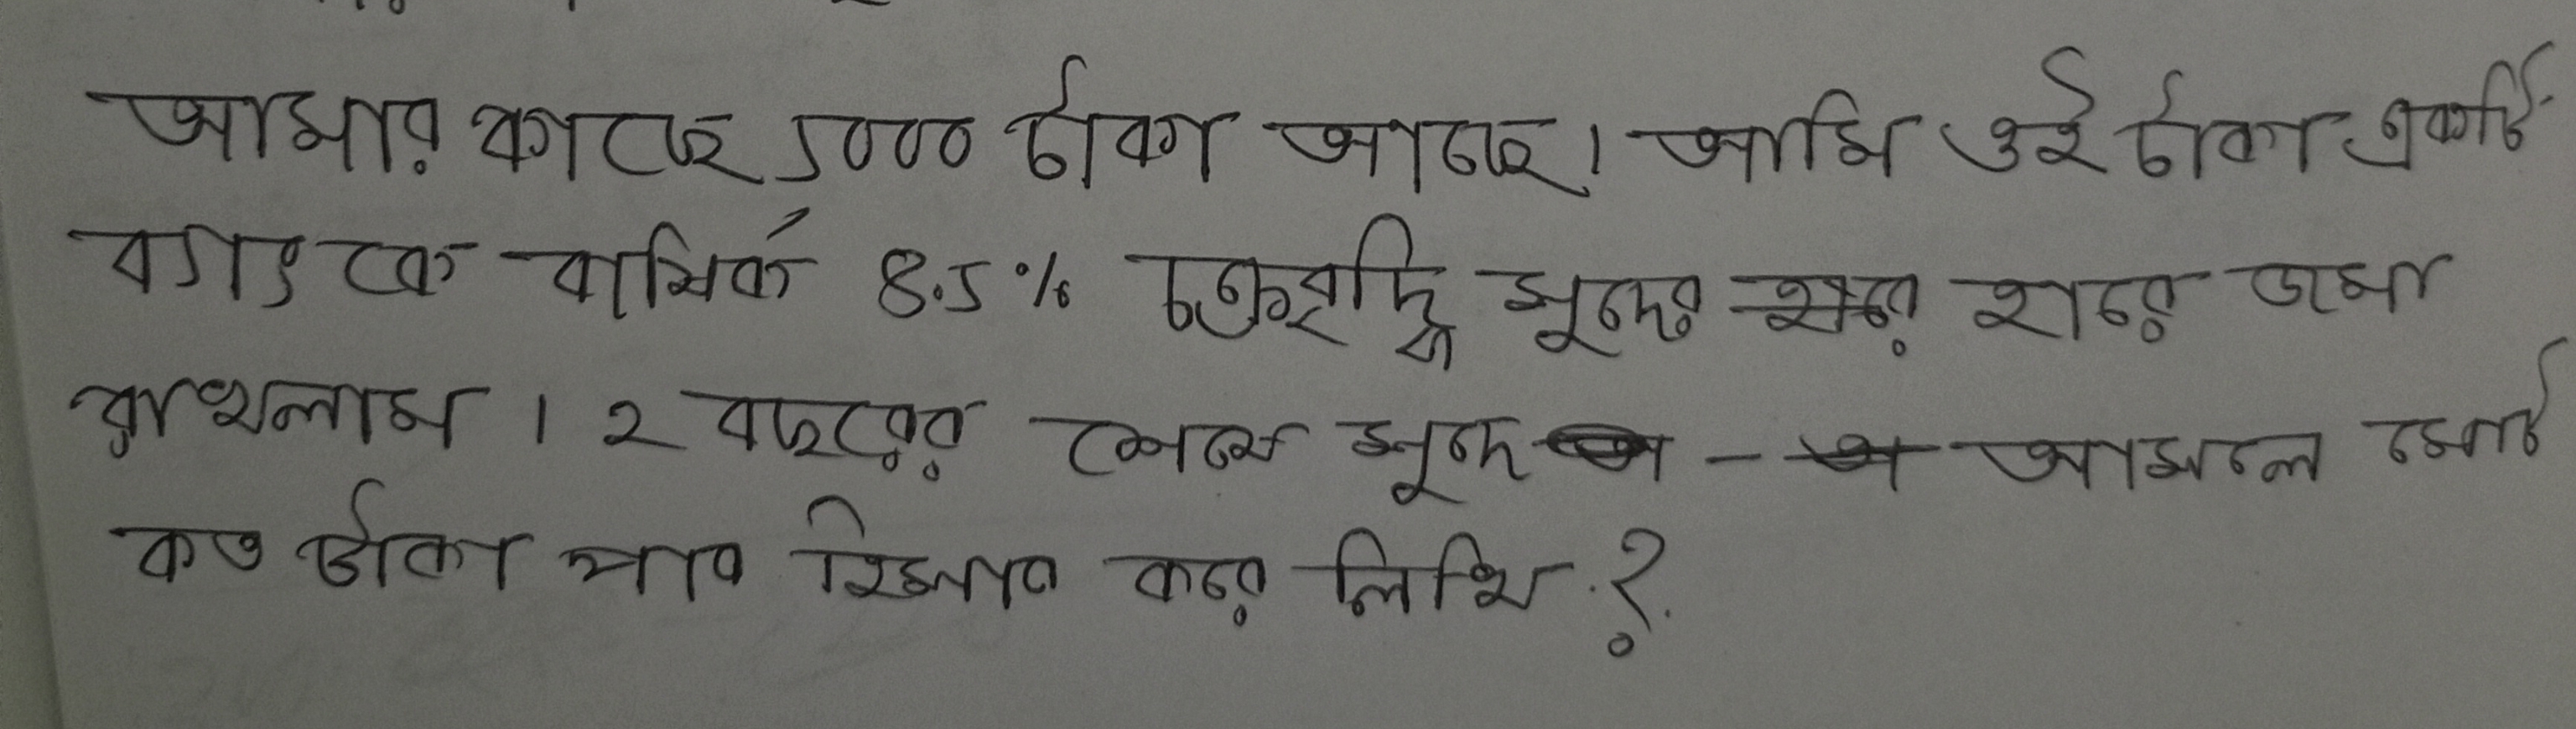 আমার কাছে ১০০০ টাকা আছে। আমি ওই টাকা একটি
ব্যাংকে বার্ষিক ৪.১% চক্রবৃদ্ধি সুদের হারে জমা
রাখলাম। ২ বছরের শেষে সুদে - আসলে মোট
কত টাকা পাব হিসাব করে লিখি?